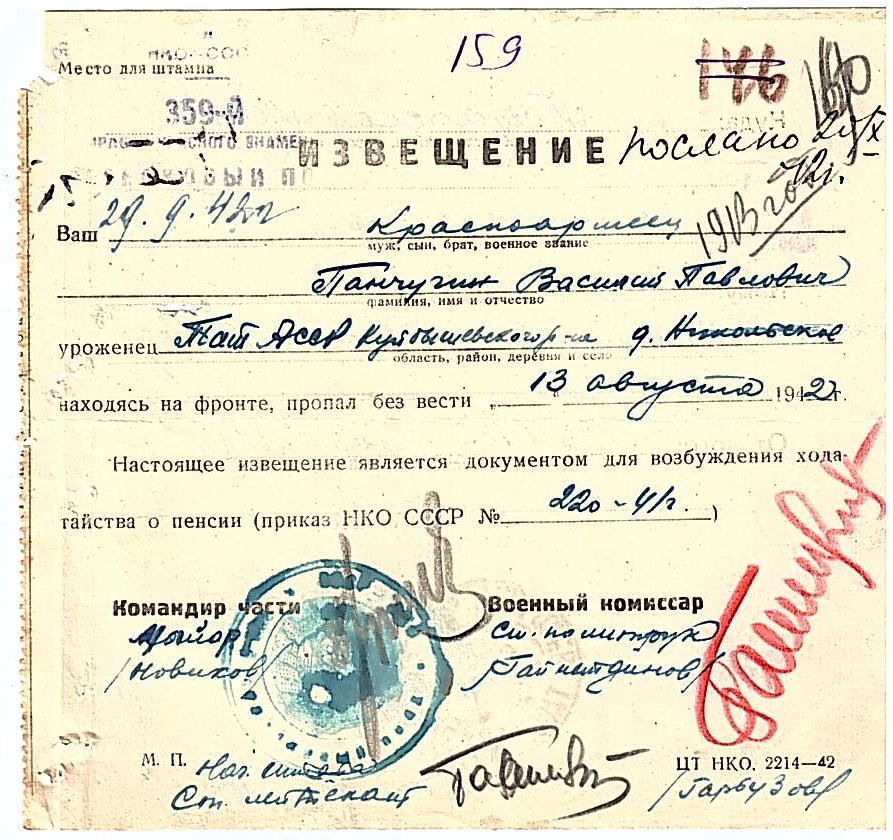 НКО СССР
Место для штампа
159
146
160
359-й
КРАСНОГО ЗНАМЕНИ
ИЗВЕЩЕНИЕ
послано 20/X
42г.
1913 год
29.9.42г
Ваш Красноармеец
муж, сын, брат, военное звание
Панчугин Василий Павлович
фамилия, имя и отчество
уроженец Тат АССР Куйбышевского р-на д. Никольское
область, район, деревня и село
находясь на фронте, пропал без вести „ 13 августа 1942 г.
Настоящее извещение является документом для возбуждения хода-
тайства о пенсии (приказ НКО СССР № 220-41г. )
Командир части Военный комиссар
Майор Ст. политрук
/Новиков/ /Гайнетдинов/
М. П. Нач. штаба ЦТ НКО. 2214—42
Ст. лейтенант /Гарбузов/